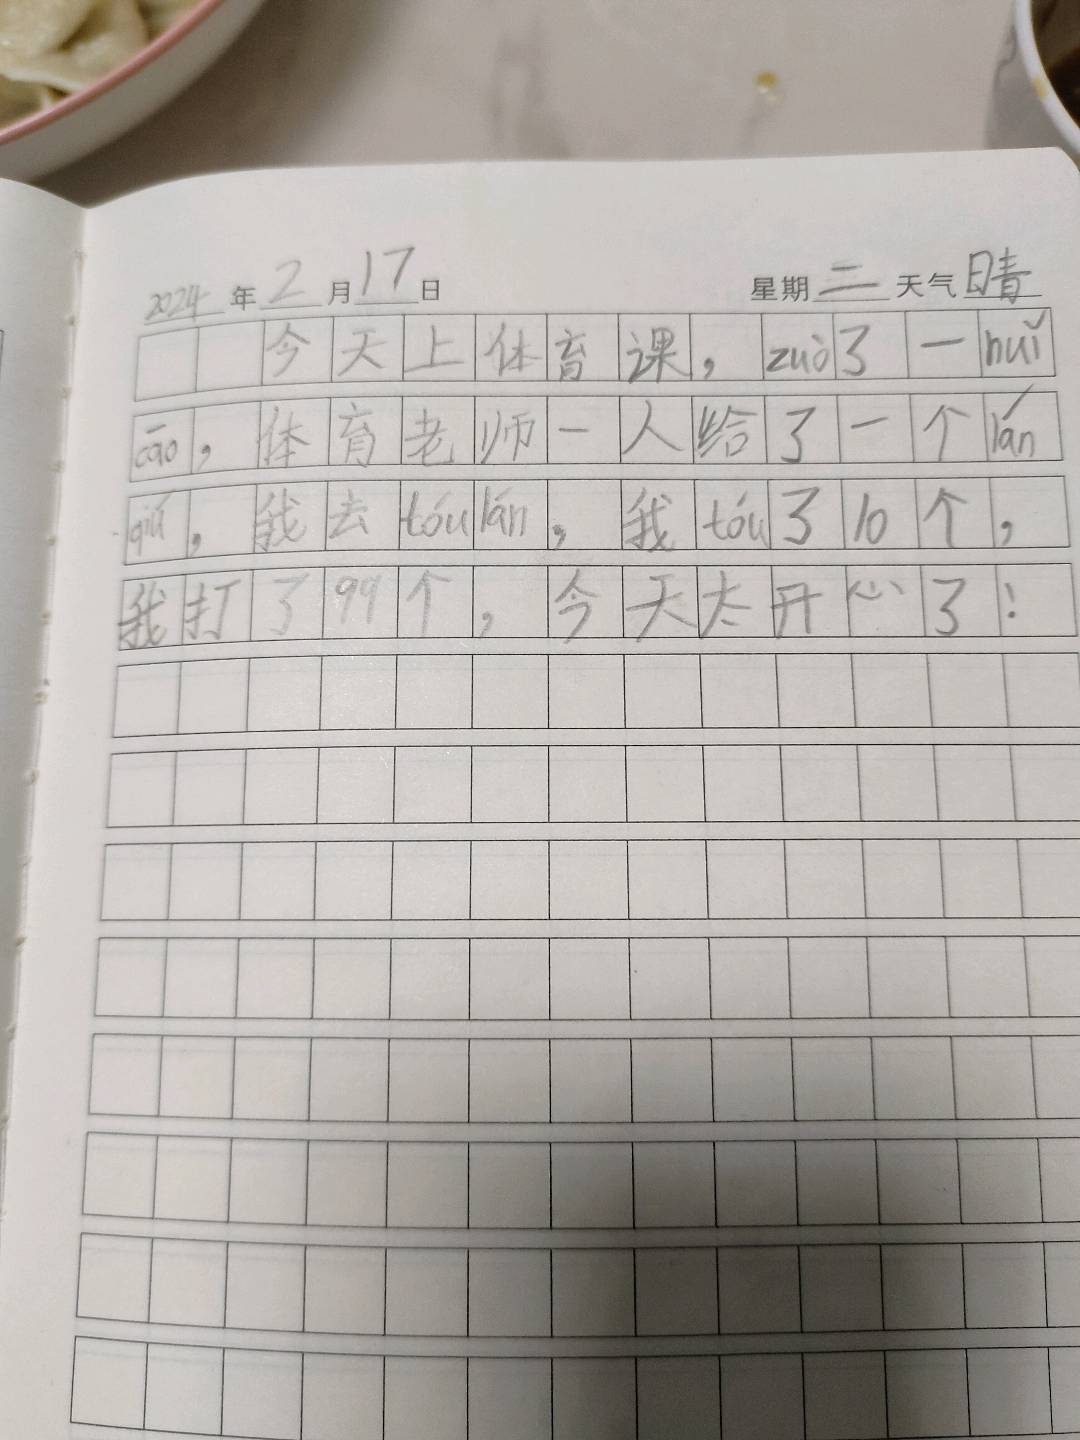 2024年2月17日 星期二天气晴
今天上体育课，zuò了一huǐ
cāo，体育老师一人给了一个lán
qiú，我去tóulán，我tóu了10个，
我打了99个，今天太开心了！